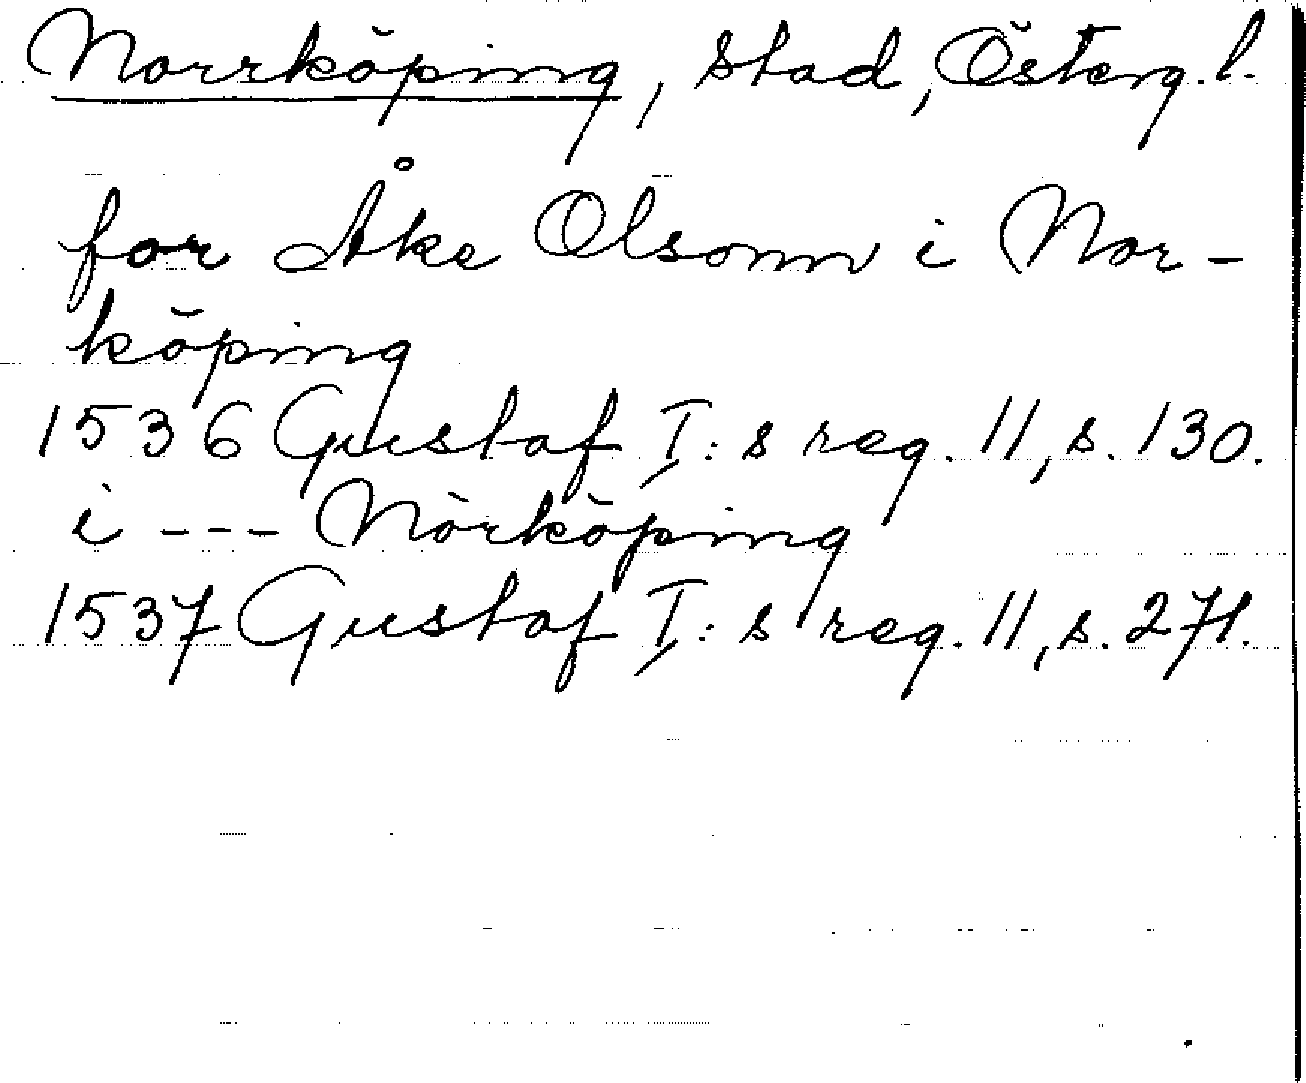 Norrköping, stad, Österg. l.
for Åke Olsonn i Nor-
köping
1536 Gustaf I:s reg. 11, s. 130.
i --- Nörköping
1537 Gustaf I:s reg. 11, s. 271.